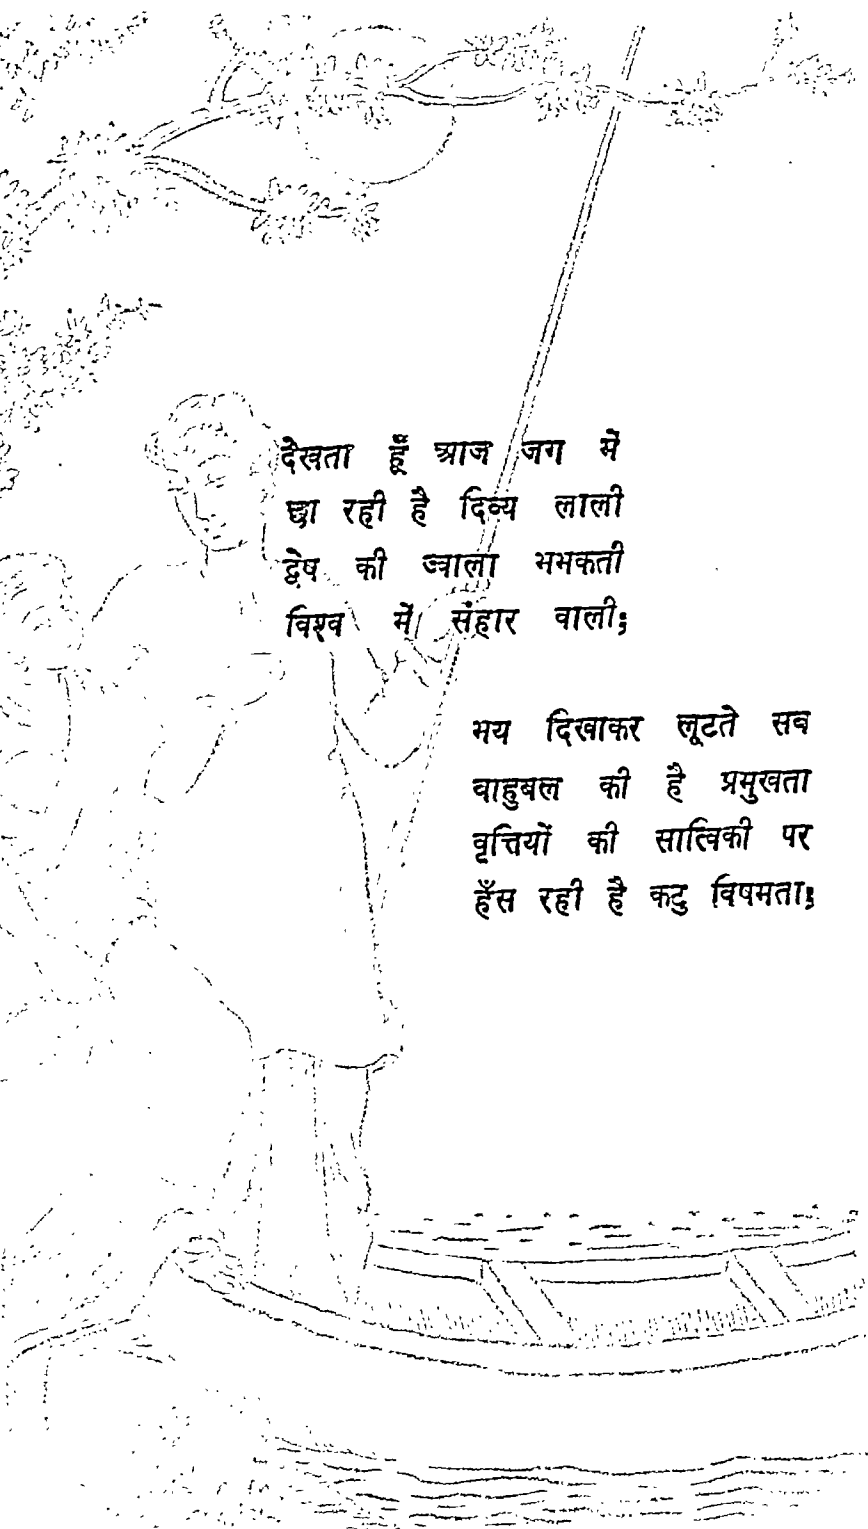 देखता हूँ आज जग में
छा रही है दिव्य लाली
द्वेष की ज्वाला भभकती
विश्व में संहार वाली;
भय दिखाकर लूटते सब
बाहुबल की है प्रमुखता
वृत्तियों की सात्विकी पर
हँस रही है कटु विषमता;